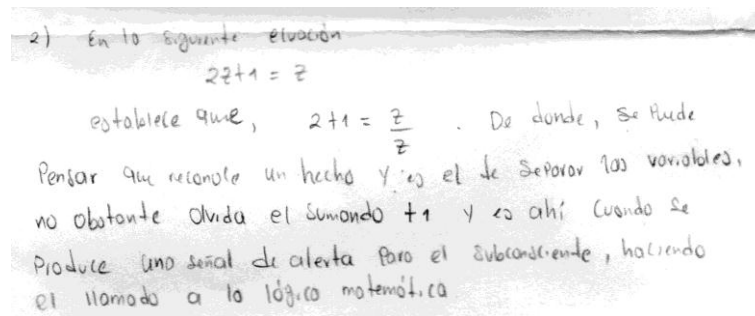 2) En la siguiente ecuación
2z+1 = z
establece que, 2+1 = z/z . De donde, se puede
Pensar que reconoce un hecho y es el de Separar las variables,
no obstante olvida el sumando +1 y es ahí cuando se
Produce una señal de alerta para el subconsciente, haciendo
el llamado a la lógica matemática